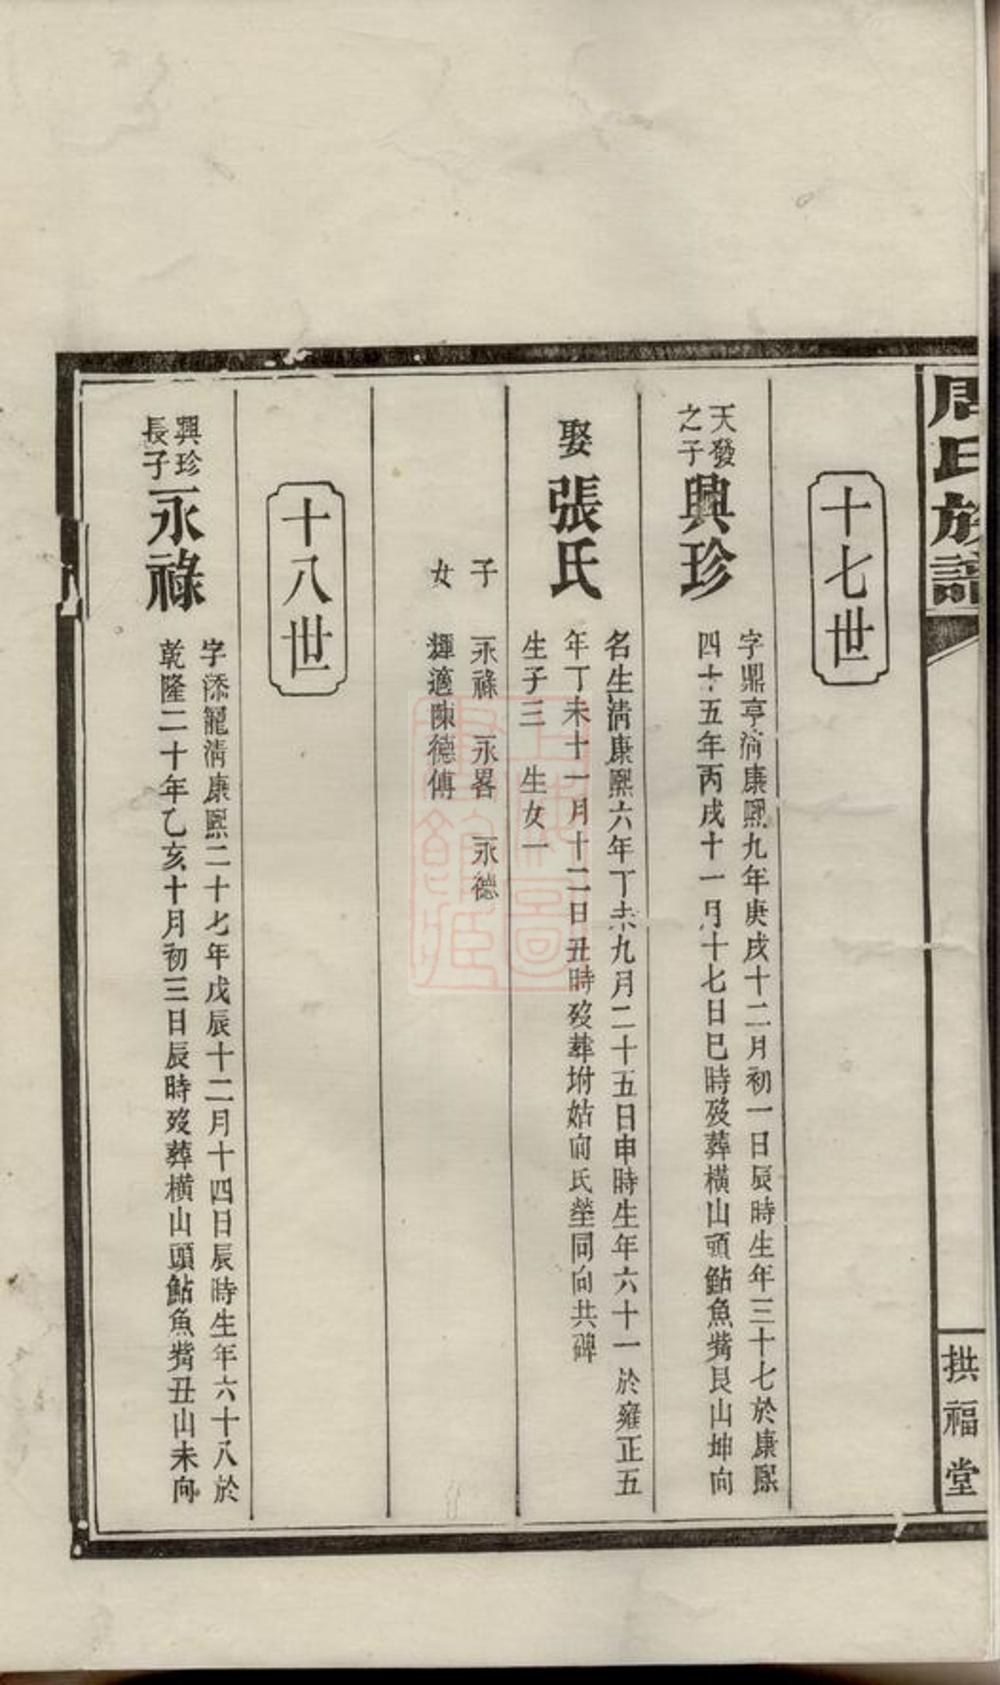 周氏族譜
拱福堂
十七世
天發
之子
興珍
字鼎亨清康熙九年庚戌十二月初一日辰時生年三十七於康熙
四十五年丙戌十一月十七日巳時歿葬橫山頭鮎魚觜艮山坤向
娶張氏
名生清康熙六年丁未九月二十五日申時生年六十一於雍正五
年丁未十一月十二日丑時歿葬坿姑向氏塋同向共碑
生子三 生女一
子 永祿 永畧 永德
女 適陳德傅
十八世
興珍
長子
永祿
字添寵清康熙二十七年戊辰十二月十四日辰時生年六十八於
乾隆二十年乙亥十月初三日辰時歿葬橫山頭鮎魚觜丑山未向
上海圖
書館藏